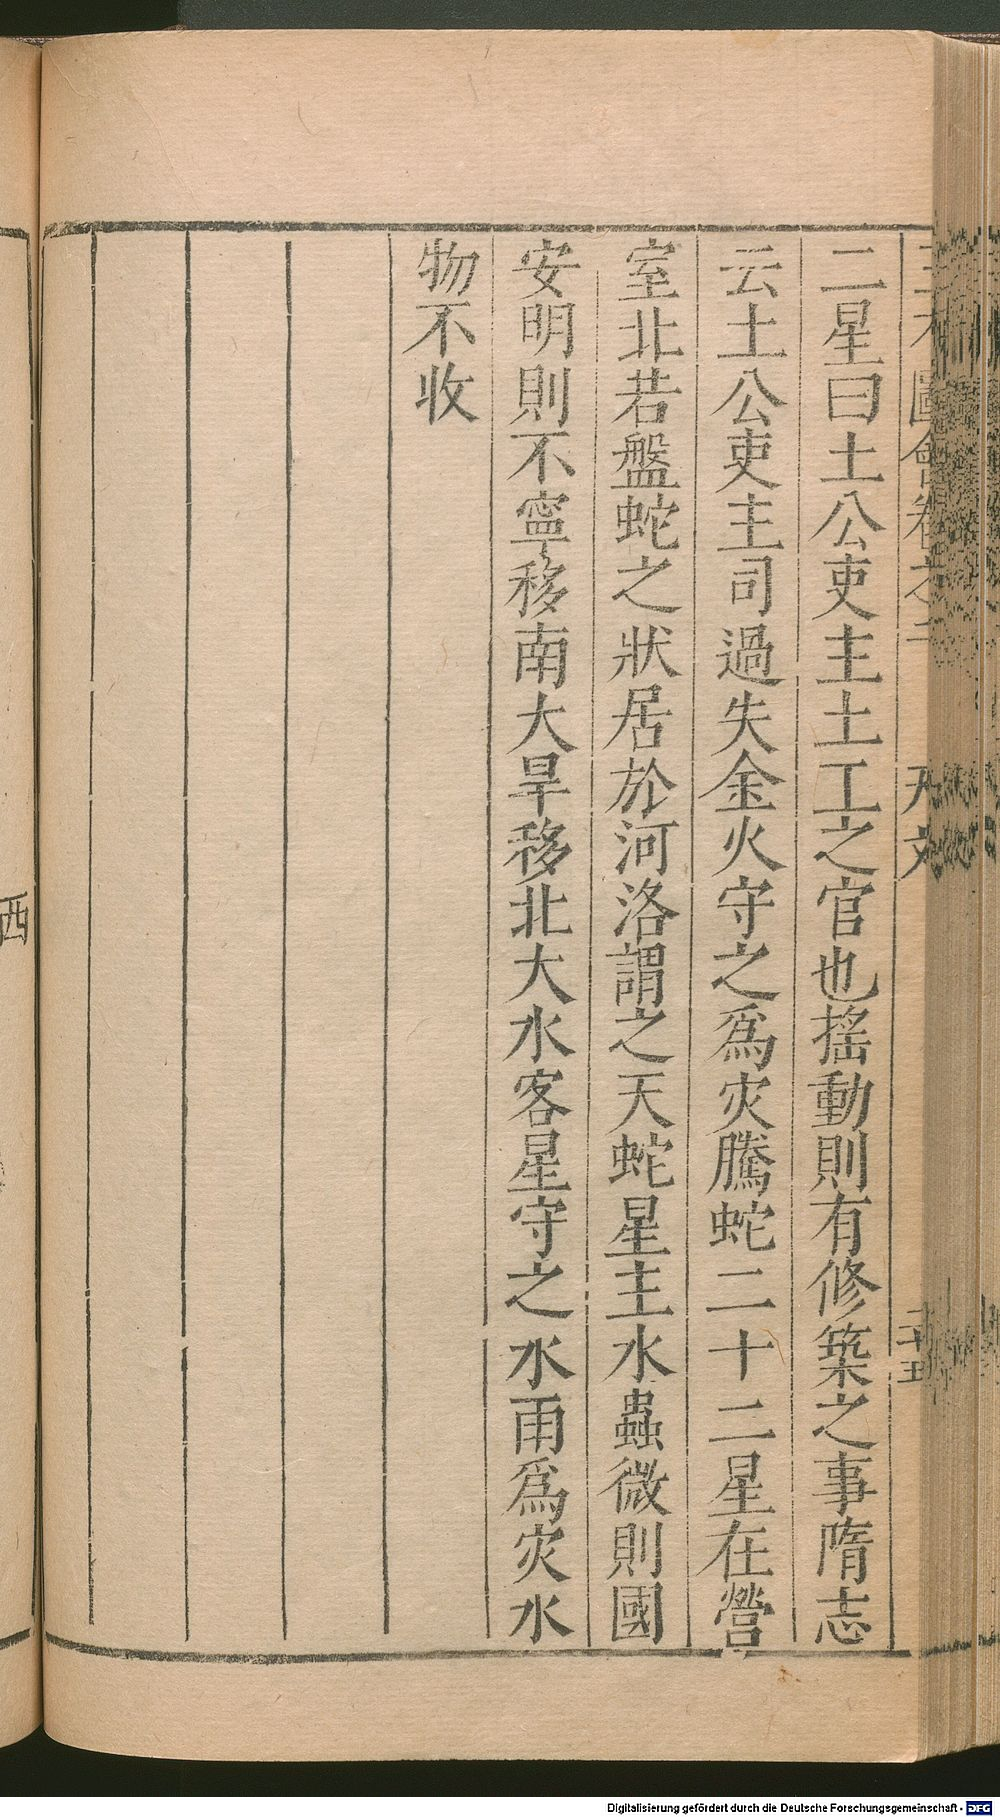 圖會卷之二 天文 二十五
二星曰土公吏主土工之官也搖動則有修築之事隋志
云土公吏主司過失金火守之爲灾騰蛇二十二星在營
室北若盤蛇之狀居於河洛謂之天蛇星主水蟲微則國
安明則不寧移南大旱移北大水客星守之水雨爲灾水
物不收
西
Digitalisierung gefördert durch die Deutsche Forschungsgemeinschaft - DFG